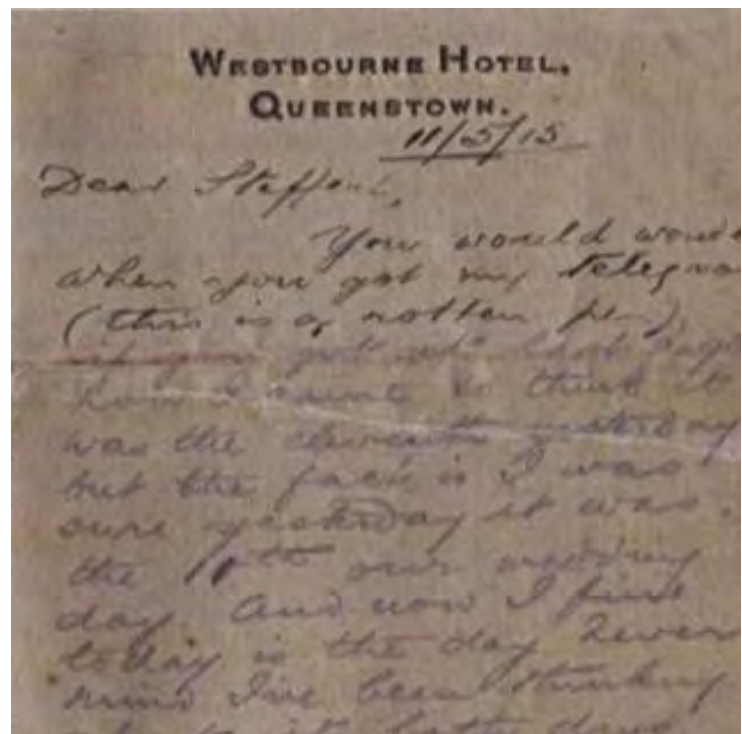 WESTBOURNE HOTEL,
QUEENSTOWN.
11/5/15
Dear Stafford,
You would
when you got my
(this is a rotten pen)
if you got it last
how I came to think it
was the eleventh yesterday
but the fact is I was
sure yesterday it was
the 11th our wedding
day. And now I find
today is the day
mind I've been thinking